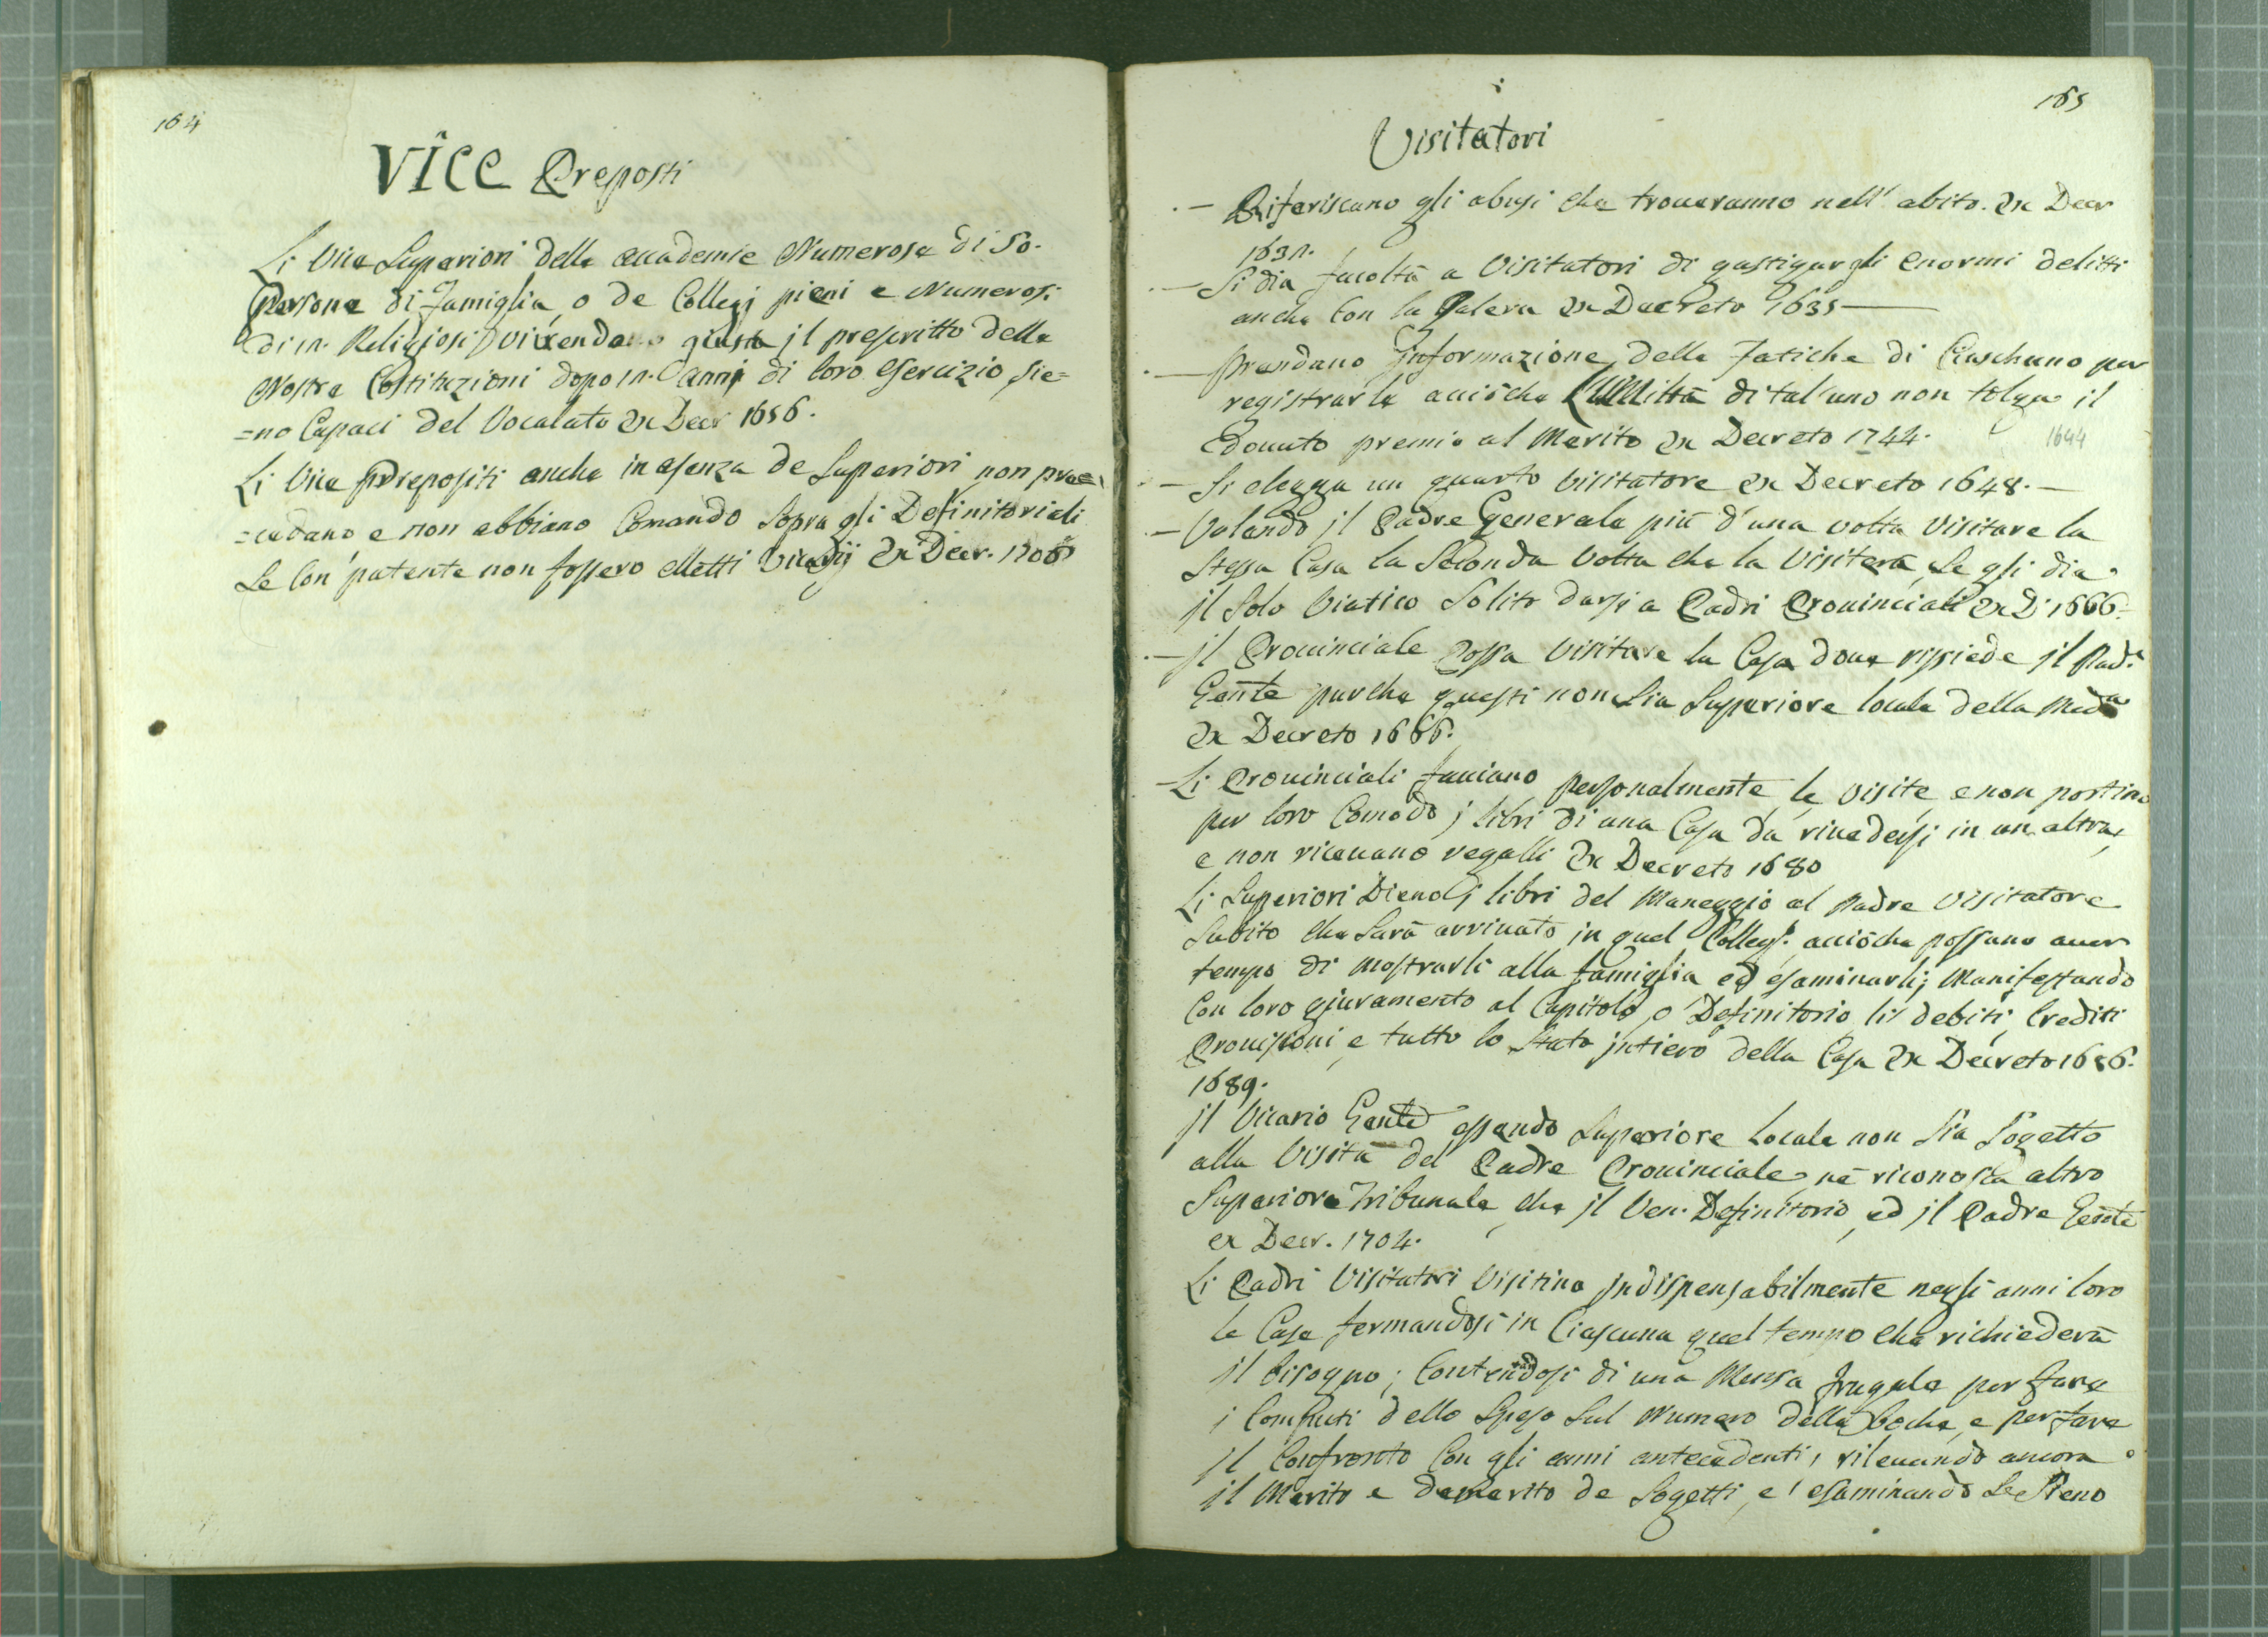 164
VICE Preposti
Li Vice Superiori delle accademie Numerose di 50.
Persone di Famiglia, o de Collegj pieni e Numerosi
di 12. Religiosi vivendo giusta jl prescritto delle
Nostre Costituzioni dopo 12. anni di loro esercizio, sie=
=no Capaci del Vocalato ex Decr 1656.
Li Vice Prepositi anche in asenza de Superiori non pre=
=cedano e non abbiano Comando Sopra gli Definitoriali
Se Con patente non fossero elletti Vicarij ex Decr. 1706
165
Visitatori
- Riferiscano gli abusi che troveranno nell' abito. ex Decr
1632.
- Si dia facoltà a Visitatori di gastigar gli enormi delitti
anche Con la Galera ex Decreto 1635 -
- Prendano Jnformazione delle Fatiche di Ciascheuno per
registrarle acciòche di tal'uno non tolga il
dovuto premio al Merito ex Decreto 1744.
1644
- Si elegga un quarto Visitatore ex Decreto 1648. -
- Volando jl Padre Generale più d'una volta Visitare la
Stessa Casa la Seconda Volta che la Visiterà, Se gli dia
jl Solo Viatico Solito darsi a Padri Provinciali ex D. 1666.
- jl Provinciale possa Visitare la Casa dove rissiede jl Pad.e
Genle purche questi non Sia Superiore locale della Meda
ex Decreto 1666.
- Li Provinciali facciano personalmente le Visite, e non portino
per loro Comodo j libri di una Casa da rivedersi in un altra,
e non ricevano regalli ex Decreto 1680
Li Superiori Dieno j libri del Maneggio al Padre Visitatore
Subito che Sarà arrivato in quel Colleg.o acciòche possano aver
tempo di mostrarli alla famiglia ed esaminarli; Manifestando
Con loro giuramento al Capitolo, o Definitorio li debiti, Crediti
Provisioni, e tutto lo Stato jntiero della Casa ex Decreto 1686.
1689.
jl Vicario Genle essendo Superiore Locale non Sia Sogetto
alla Visita del Padre Provinciale, nè riconosca altro
Superiore Tribunale, che jl Ven. Definitorio, ed jl Padre Genle
ex Decr. 1704.
Li Padri Visitatori Visitino jndispensabilmente negli anni loro
le Case fermandosi in Ciascuna quel tempo che richiederà
jl bisogno; Contentandosi di una Mensa frugale per fare
j Computi dello Speso Sul Numero delle boche, e per fare
jl Confronto Con gli anni antecedenti, rilevando ancora
jl Merito e demerito de Sogetti, e esaminando Se Sieno